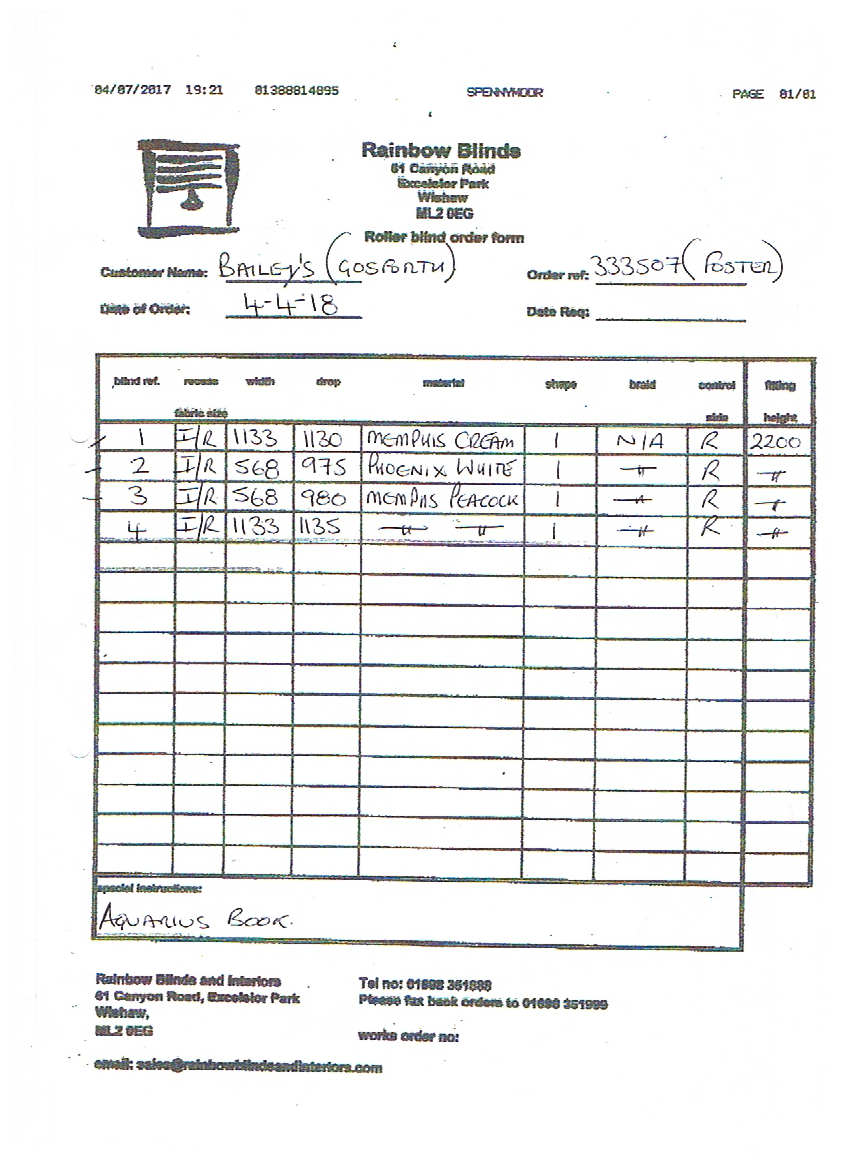 04/07/2017 19:21 01388814895 SPENNYMOOR PAGE 01/01
Rainbow Blinds
61 Canyon Road
Excelsior Park
Wishaw
ML2 0EG
Roller blind order form
Customer Name: BAILEY'S (GOSFORTH) Order ref: 333507 (FOSTER)
Date of Order: 4-4-18 Date Req:
blind ref. recess width drop material shape braid control fitting
fabric size side height
1 I/R 1133 1130 MEMPHIS CREAM 1 N/A R 2200
2 I/R 568 975 PHOENIX WHITE 1 -"- R -"-
3 I/R 568 980 MEMPHIS PEACOCK 1 -"- R -"-
4 I/R 1133 1135 -"- -"- 1 -"- R -"-
special instructions:
AQUARIUS BOOK.
Rainbow Blinds and Interiors Tel no: 01698 351888
61 Canyon Road, Excelsior Park Please fax back orders to 01698 351999
Wishaw,
ML2 0EG works order no:
email: sales@rainbowblindsandinteriors.com